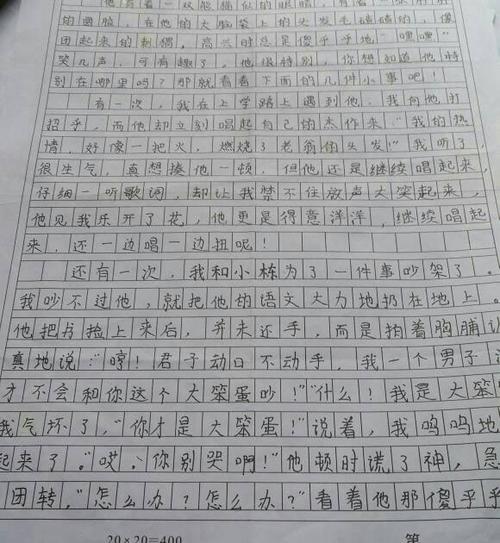 他有着一双熊猫似的眼睛，有着一张胖胖
的圆脸，在他的大脑袋上的头发毛碴碴的，像
团起来的刺猬，高兴时总是傻乎乎地“嘿嘿”
笑几声，可有趣了，他很特别，你想知道他特
别在哪里吗？那就看看下面的几件小事吧！
有一次，我在上学路上遇到他，我向他打
招乎，而他却立刻唱起自己的杰作来“我的热
情，好像一把火，燃烧了老翁的头发！”我听了，
很生气，真想揍他一顿，但他还是继续唱起来，
仔细一听歌词，却让我禁不住放声大笑起来，
他见我乐开了花，他更是得意洋洋，继续唱起
来，还一边唱一边扭呢！
还有一次，我和小栋为了一件事吵架了。
我吵不过他，就把他的语文大力地扔在地上。
他把书捡上来后，并未还手，而是拍着胸脯认
真地说：“哼！君子动口不动手，我一个男子
才不会和你这个大笨蛋吵！”“什么！我是大笨
我气坏了，“你才是大笨蛋！”说着，我呜呜地
起来了。“哎，你别哭啊！”他顿时谎了神，急
团转，“怎么办？怎么办？”看着他那傻乎乎
20×20=400
第